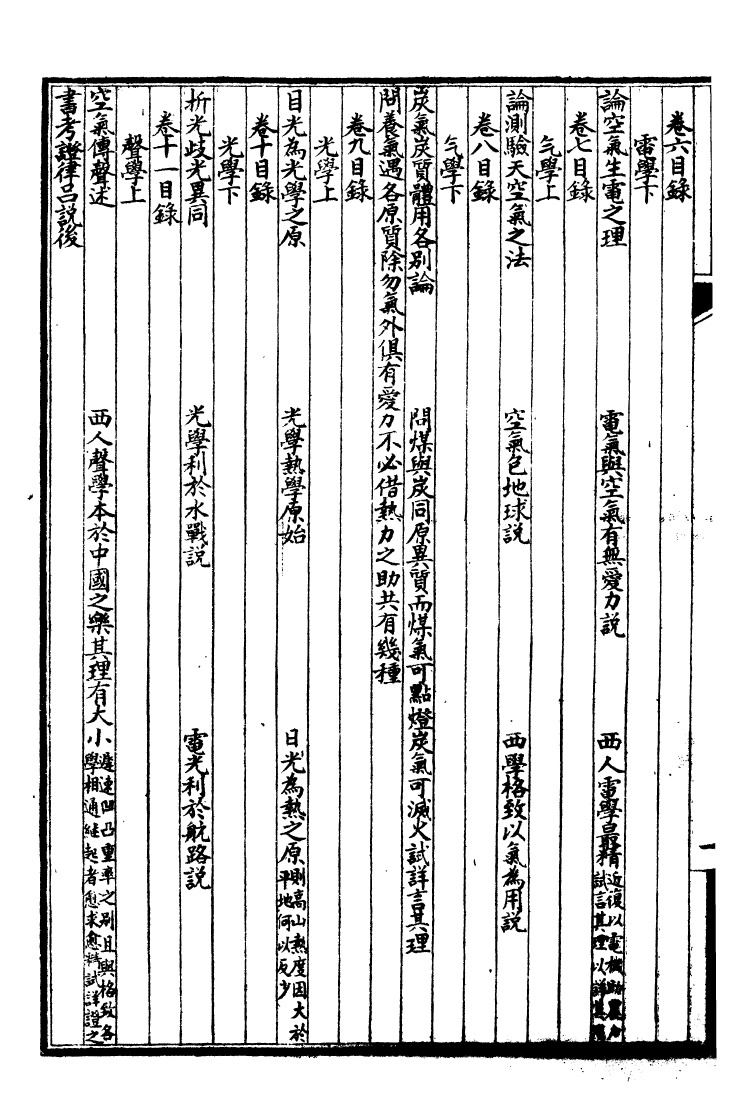 卷六目錄
電學下
論空氣生電之理　電氣與空氣有無愛力說　西人電學最精近復以電機助農力試言其理以詳其
卷七目錄
气學上
論測驗天空氣之法　空氣包地球說　西學格致以氣為用說
卷八目錄
气學下
炭氣炭質體用各別論　問煤與炭同原異質而煤氣可點燈炭氣可滅火試詳言其理
問養氣遇各原質除勿氣外俱有愛力不必借熱力之助共有幾種
卷九目錄
光學上
目光為光學之原　光學熱學原始　日光為熱之原則高山熱度因大於平地何以反少
卷十目錄
光學下
折光歧光異同　光學利於水戰說　電光利於航路說
卷十一目錄
聲學上
空氣傳聲述　西人聲學本於中國之樂其理有大小遲速凹凸重率之別且與格致各學相通繼起者愈求愈精試詳證之
書考證律呂說後